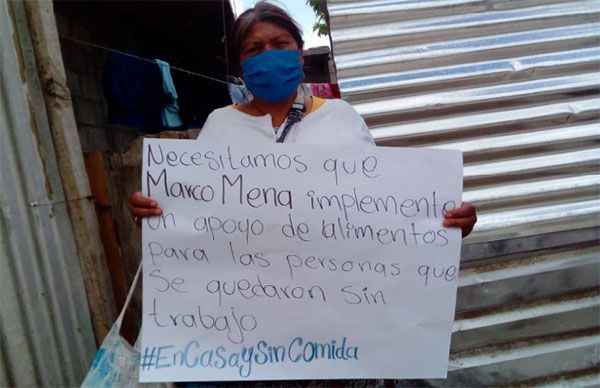 Necesitamos que
Marco Mena implemente
un apoyo de alimentos
para las personas que
se quedaron sin
trabajo
#EnCasaySinComida